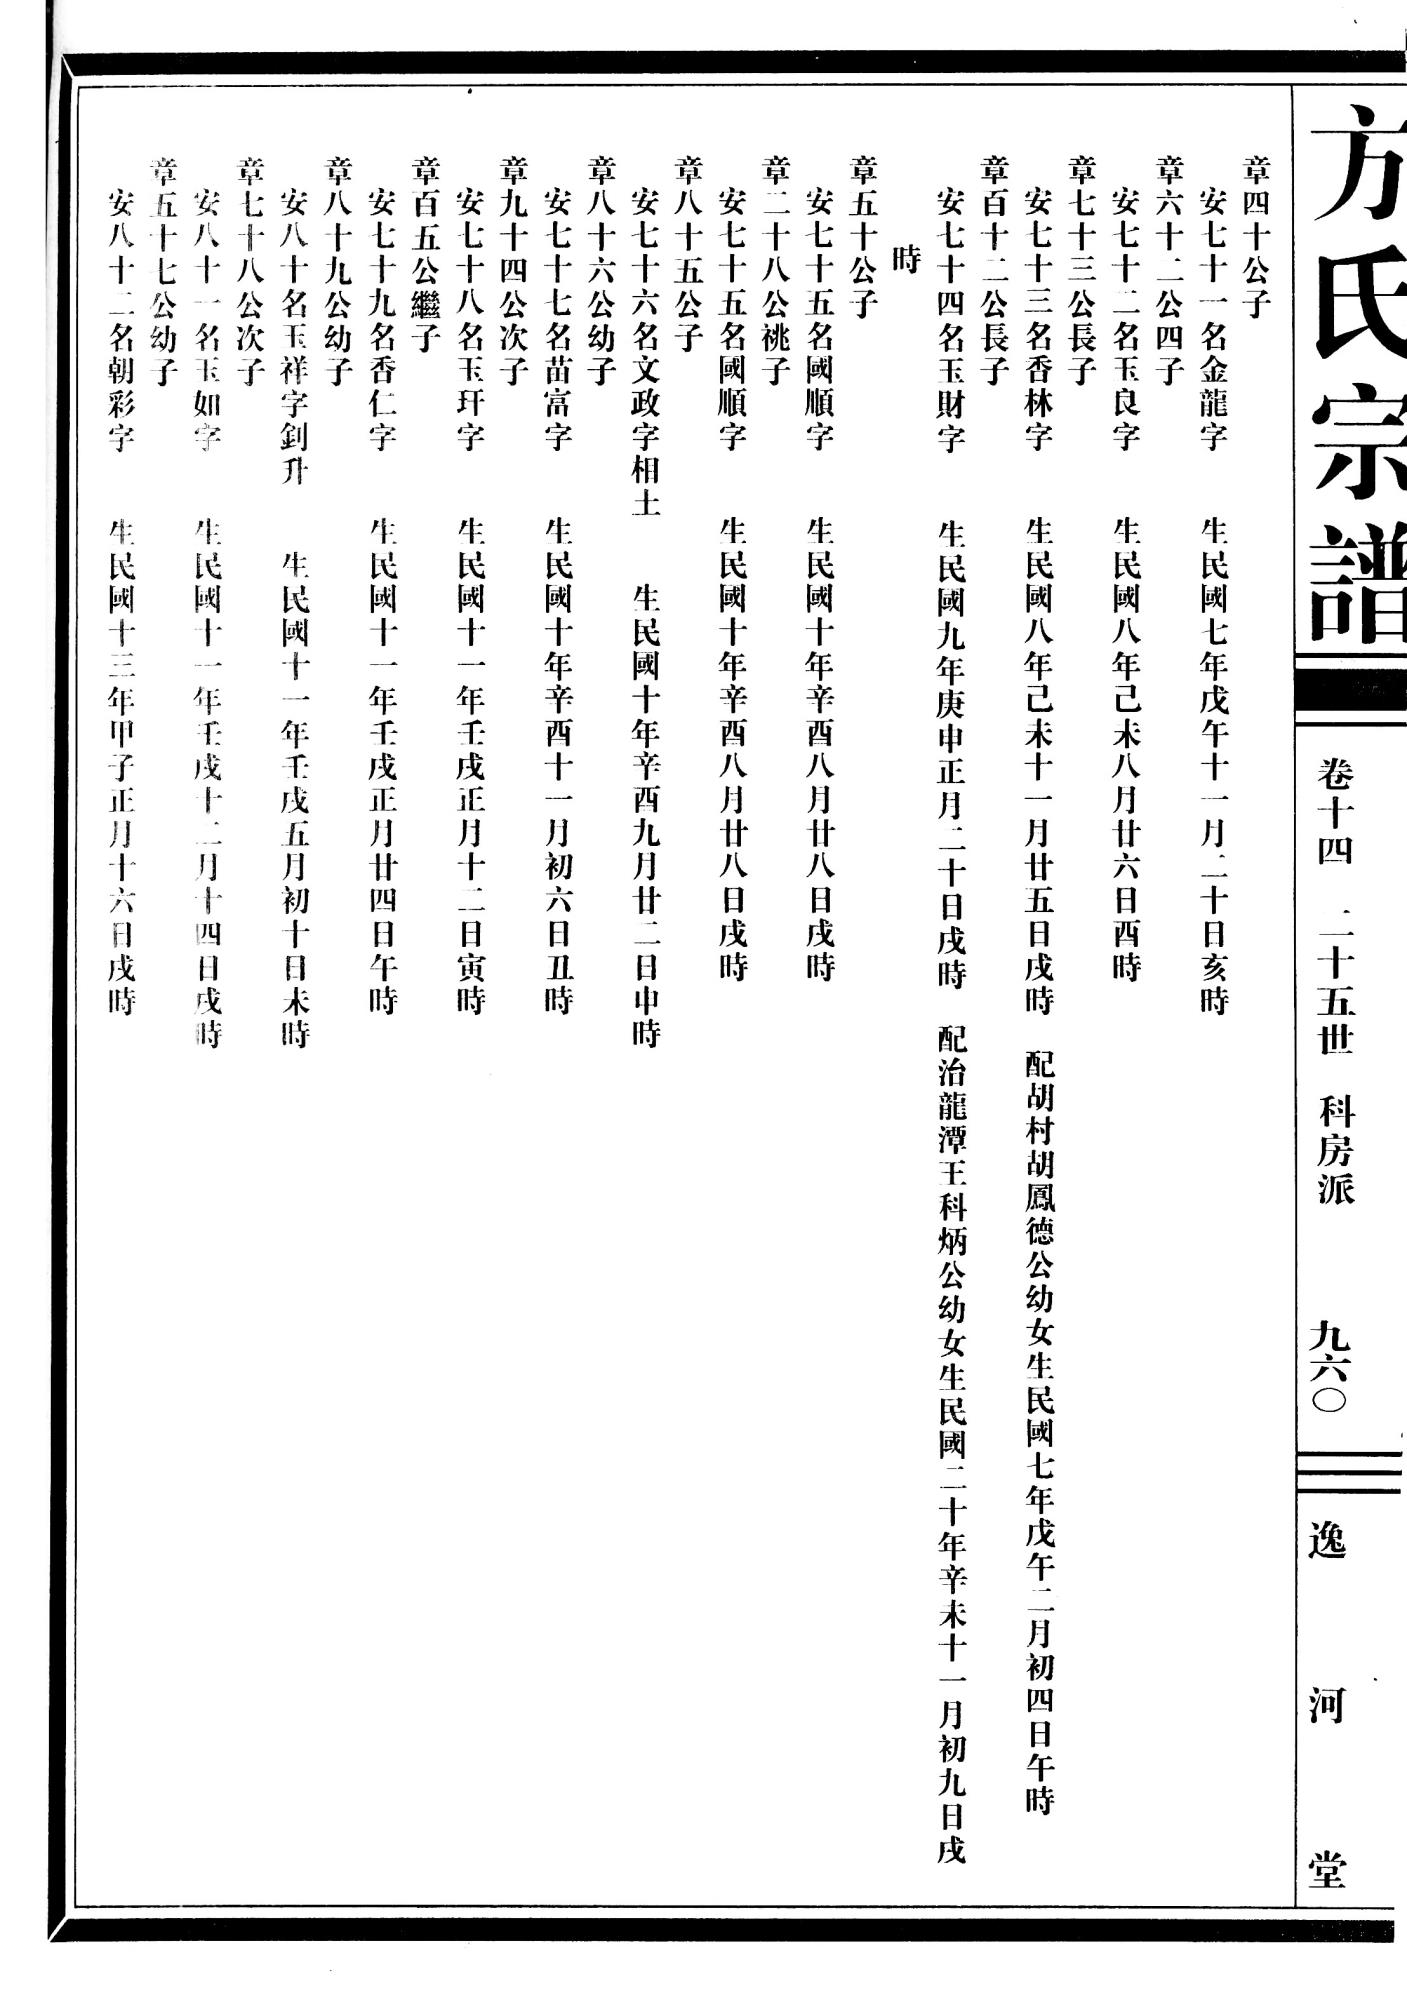 方氏宗譜
卷十四 二十五世 科房派 九六〇
逸河堂
章四十公子
安七十一名金龍字 生民國七年戊午十一月二十日亥時
章六十二公四子
安七十二名玉良字 生民國八年己未八月廿六日酉時
章七十三公長子
安七十三名香林字 生民國八年己未十一月廿五日戌時 配胡村胡鳳德公幼女生民國七年戊午二月初四日午時
章百十二公長子
安七十四名玉財字 生民國九年庚申正月二十日戌時 配治龍潭王科炳公幼女生民國二十年辛未十一月初九日戌
時
章五十公子
安七十五名國順字 生民國十年辛酉八月廿八日戌時
章二十八公祧子
安七十五名國順字 生民國十年辛酉八月廿八日戌時
章八十五公子
安七十六名文政字相土 生民國十年辛酉九月廿二日申時
章八十六公幼子
安七十七名苗富字 生民國十年辛酉十一月初六日丑時
章九十四公次子
安七十八名玉玕字 生民國十一年壬戌正月十二日寅時
章百五公繼子
安七十九名香仁字 生民國十一年壬戌正月廿四日午時
章八十九公幼子
安八十名玉祥字釗升 生民國十一年壬戌五月初十日未時
章七十八公次子
安八十一名玉如字 生民國十一年壬戌十二月十四日戌時
章五十七公幼子
安八十二名朝彩字 生民國十三年甲子正月十六日戌時